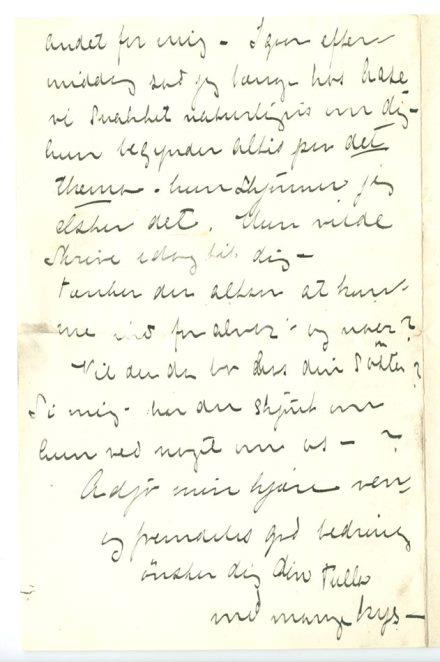 andet for mig – I gaar efter-
middag sad jeg længe hos Aase
vi snakket naturligvis om dig –
hun begynder altid paa det
thema – hun skjønner jeg
elsker det. Hun vilde
skrive idag til dig –
Tænker du altsaa at kom-
me ind for alvor – og naar?
Vil du da bo hos din Søster?
Si mig – har du skjønt om
hun ved noget om os – ?
Adjø min kjære ven –
og fremdeles god bedring
ønsker dig din Tulla
med mange kys –